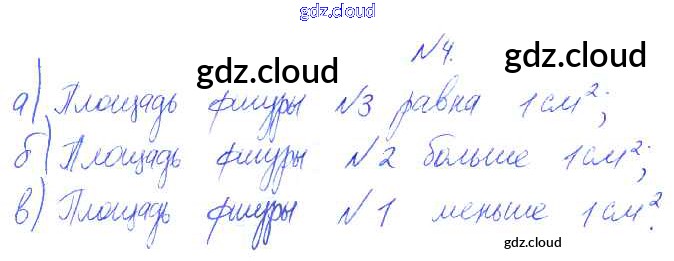 gdz.cloud
№4.
gdz.cloud gdz.cloud
а) Площадь фигуры №3 равна 1 см²;
б) Площадь фигуры №2 больше 1 см²;
в) Площадь фигуры №1 меньше 1 см².
gdz.cloud